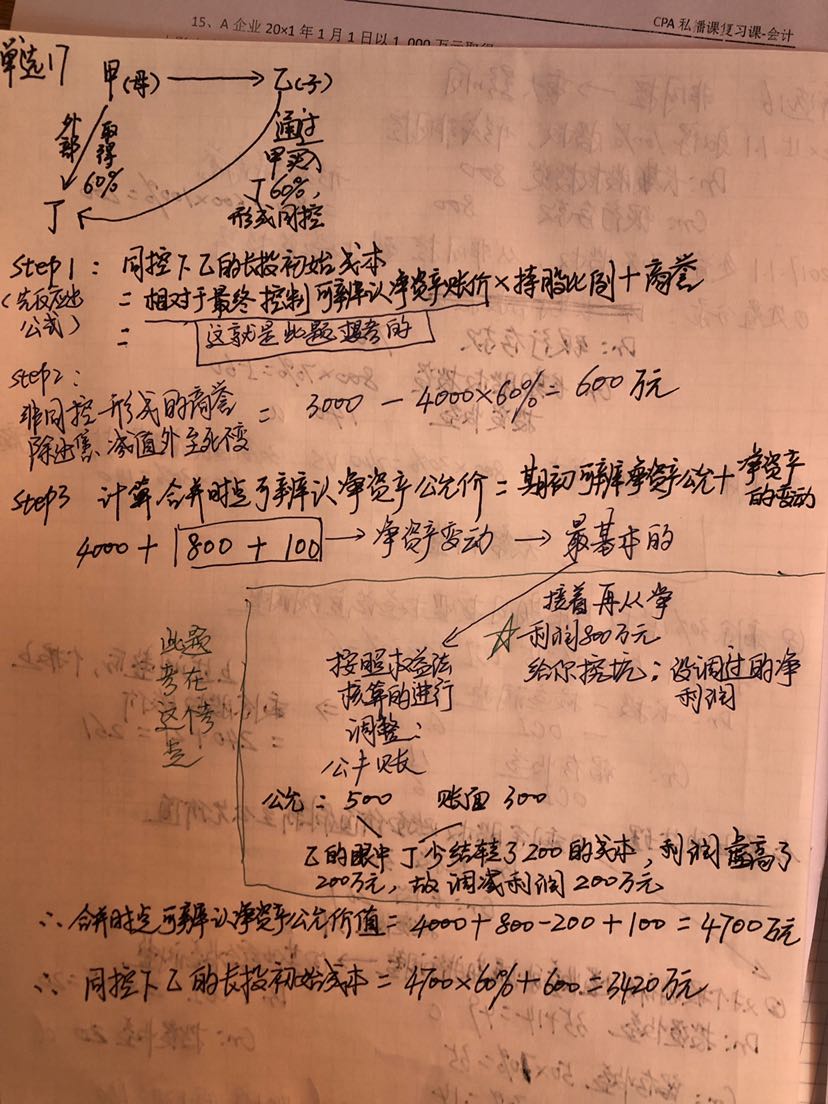 CPA 私播课复习课-会计
15、A 企业 20×1 年 1 月 1 日以 1 000 万元取得
单选17
甲(母) → 乙(子)
外部 取得 60%
丁
通过
甲买入
丁60%,
形式同控
step1: 同控下乙的长投初始成本
(先反应出公式) = 相对于最终控制可辨认净资产账价×持股比例+商誉
= 这就是此题想考的
step2:
非同控形成的商誉 = 3000 - 4000×60% = 600万元
除出售、减值外至死不变
step3 计算合并时点可辨认净资产公允价=期初可辨净资产公允+净资产的变动
4000 + 800 + 100 → 净资产变动 → 最基本的
此题
考在
这个考
点
接着再从净
☆ 利润800万元
给你挖坑:没调过的净
利润
按照权益法
核算的进行
调整:
公≠账
公允 = 500 账面 300
乙的眼中丁少结转了200的成本,利润虚高了
200万元,故调减利润200万元
∴ 合并时点可辨认净资产公允价值=4000+800-200+100=4700万元
∴ 同控下乙的长投初始成本=4700×60%+600=3420万元